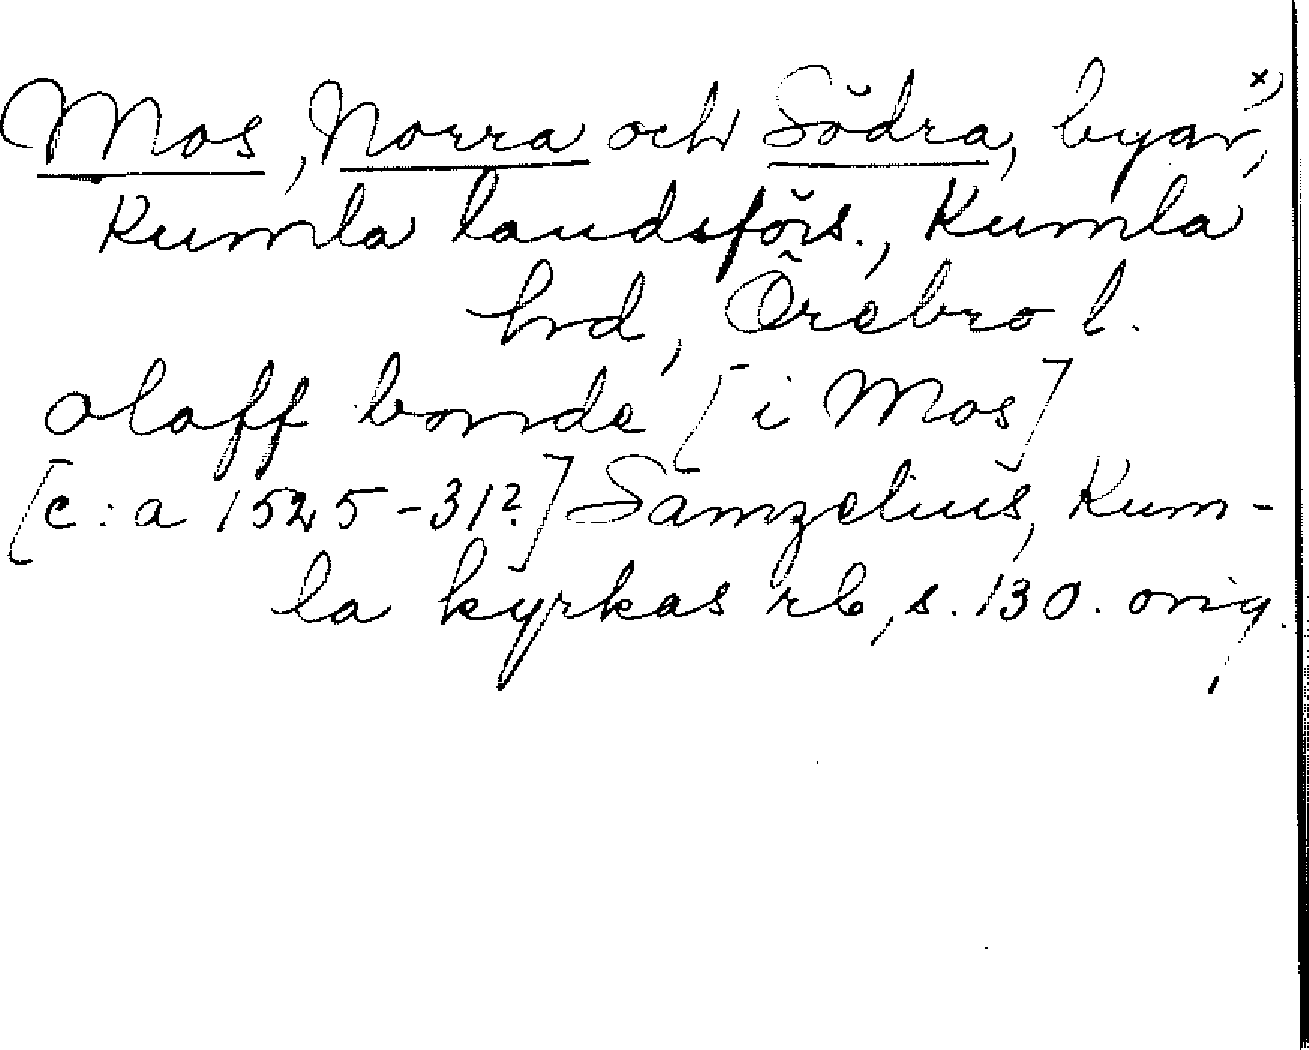 Mos, Norra och Södra, byar x),
Kumla landsförs., Kumla
hd, Örebro l.
olaff bonde [i Mos]
[c:a 1525-31?] Samzelius, Kum-
la kyrkas rb, s. 130. orig.